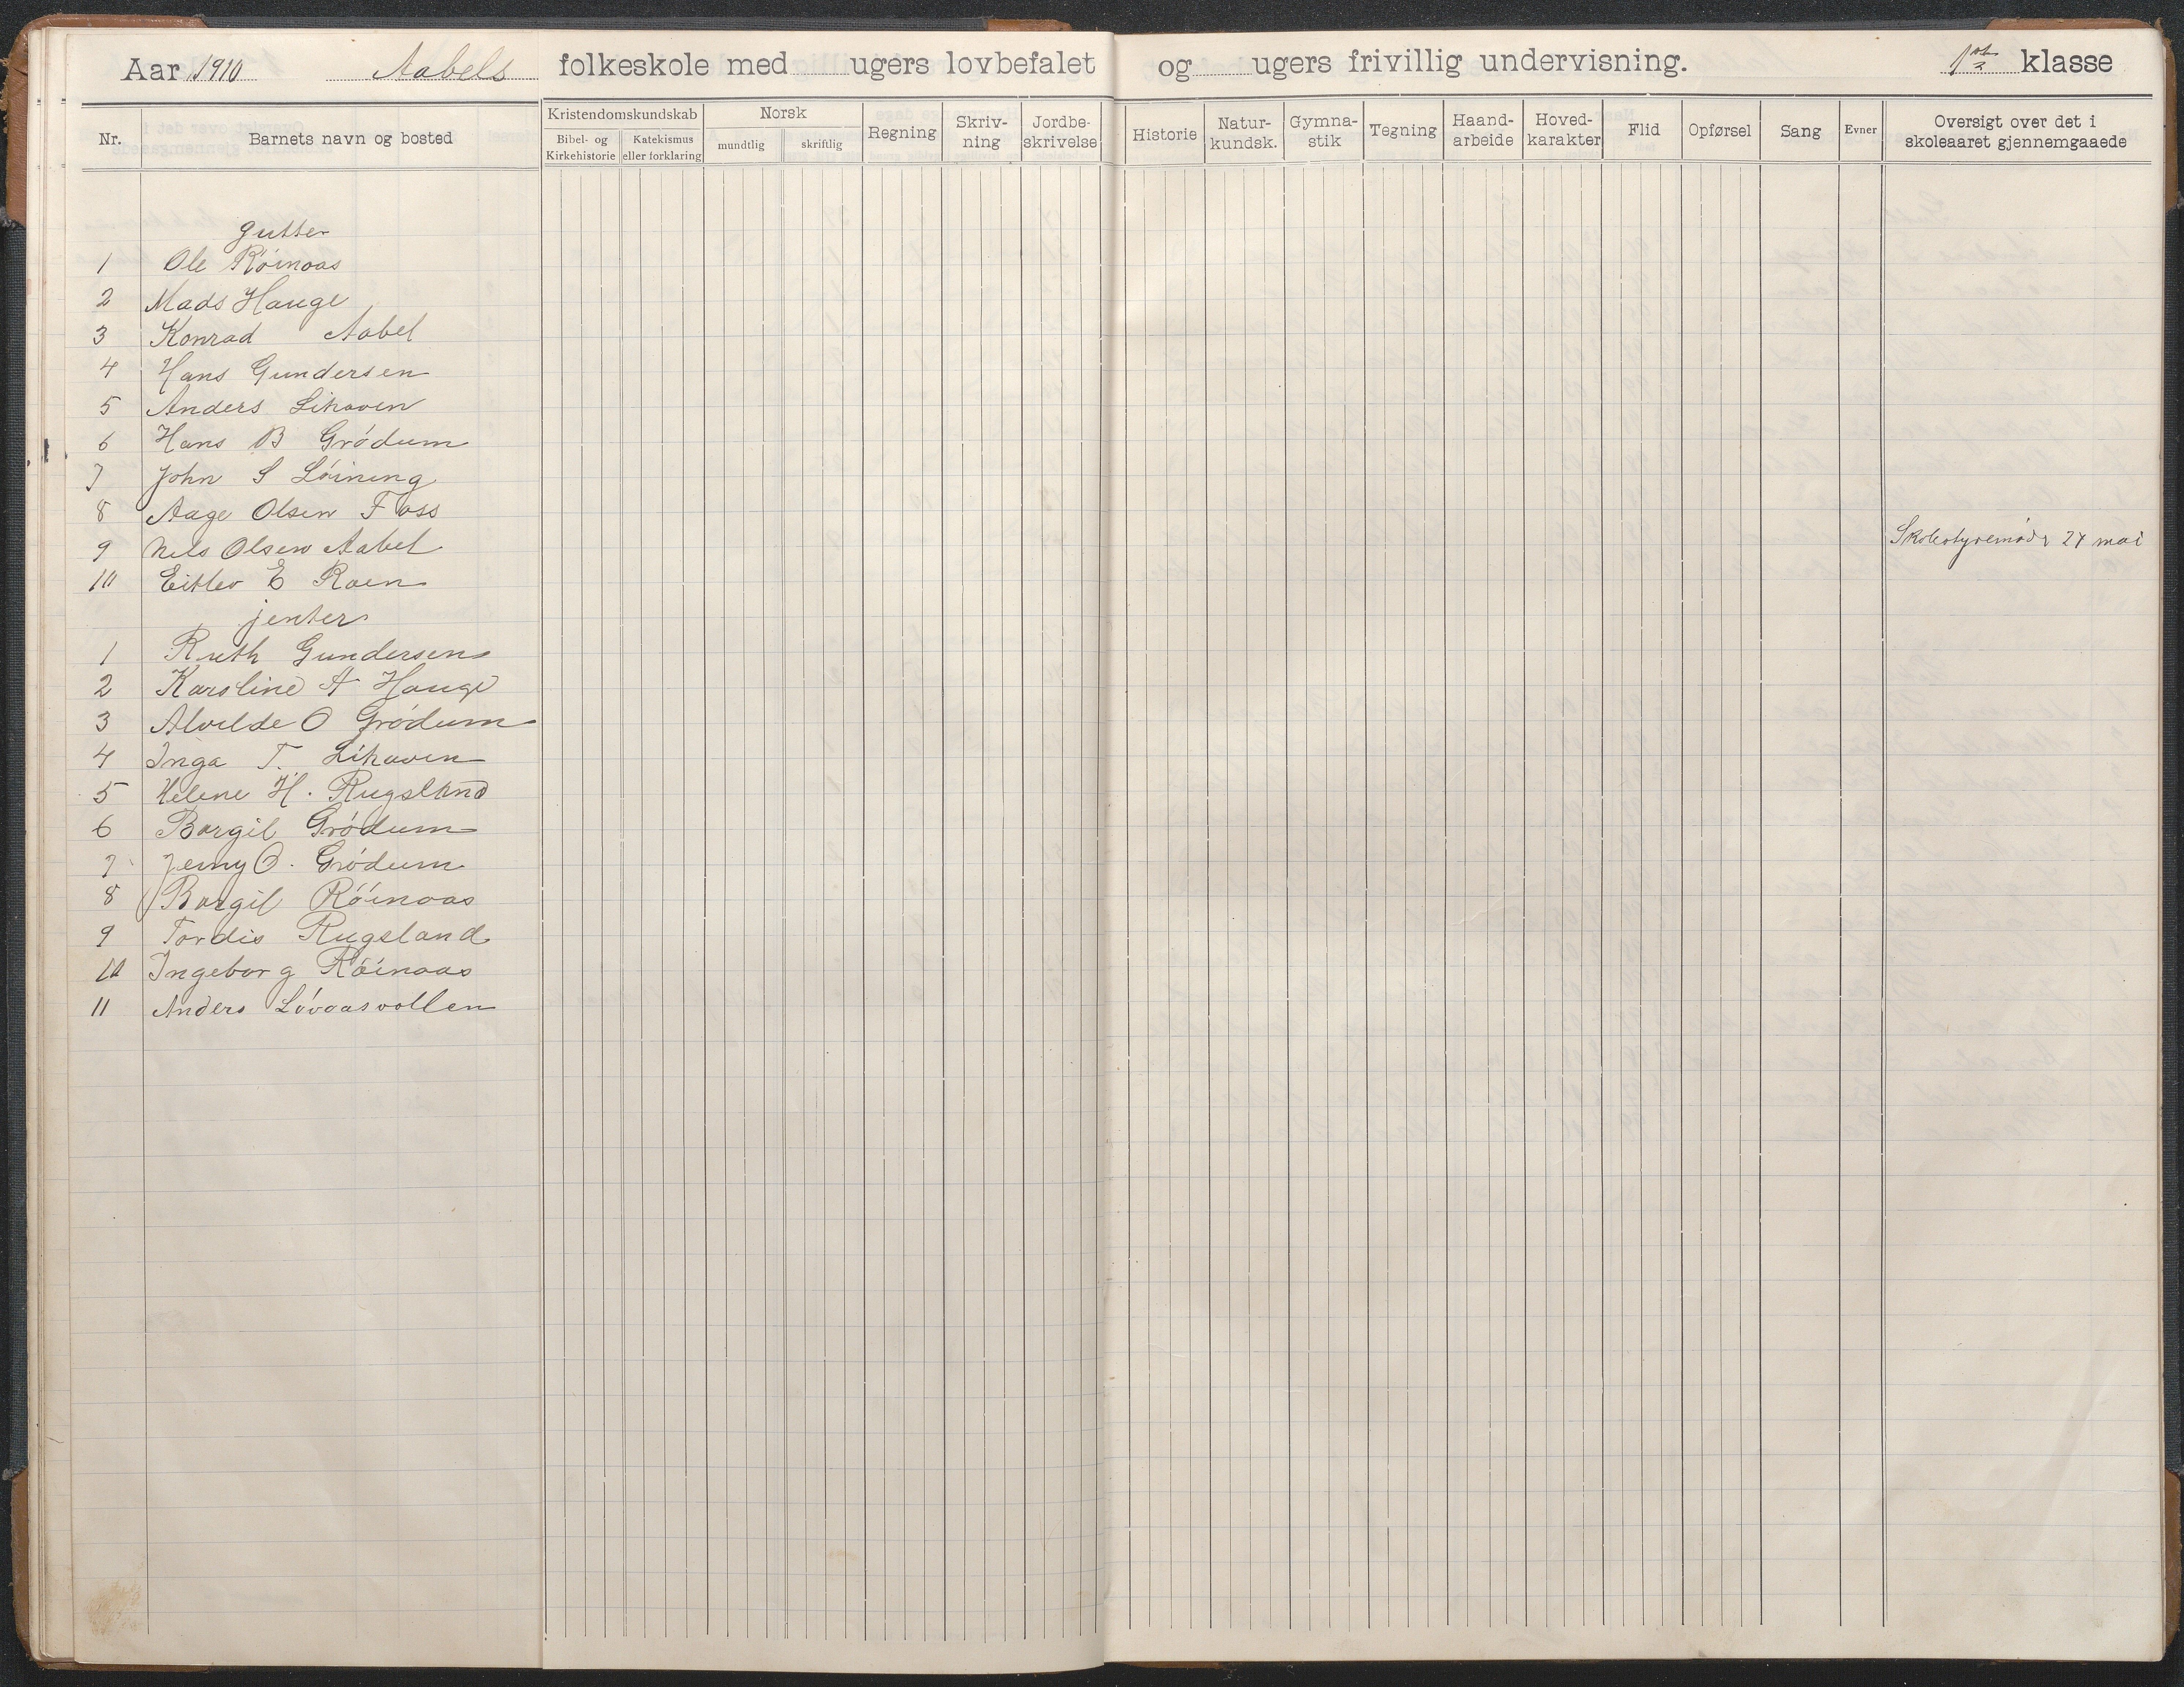 Aar 1910 Aabels folkeskole med ugers lovbefalet og ugers frivillig undervisning. 1ste klasse
Nr. Barnets navn og bosted
Kristendomskundskab
Bibel- og Kirkehistorie
Katekismus eller forklaring
Norsk
mundtlig
skriftlig
Regning
Skriv-ning
Jordbe-skrivelse
Historie
Natur-kundsk.
Gymna-stik
Tegning
Haand-arbeide
Hoved-karakter
Flid
Opførsel
Sang
Evner
Oversigt over det i skoleaaret gjennemgaaede
gutter
1 Ole Röinaas
2 Mads Hauge
3 Konrad Aabel
4 Hans Gundersen
5 Anders Lihaven
6 Hans B Grödum
7 John S Löining
8 Aage Olsen Foss
9 Nils Olsen Aabel
Skolestyremöde 27 mai
10 Eitlev E Roen
jenter
1 Ruth Gundersen
2 Karoline A Hauge
3 Alvilde O Grödum
4 Inga T. Lihaven
5 Helene H. Rugsland
6 Borgil Grödum
7 Jenny O. Grödum
8 Borgil Röinaas
9 Tordis Rugsland
10 Ingeborg Röinaas
11 Anders Lövaasvollen